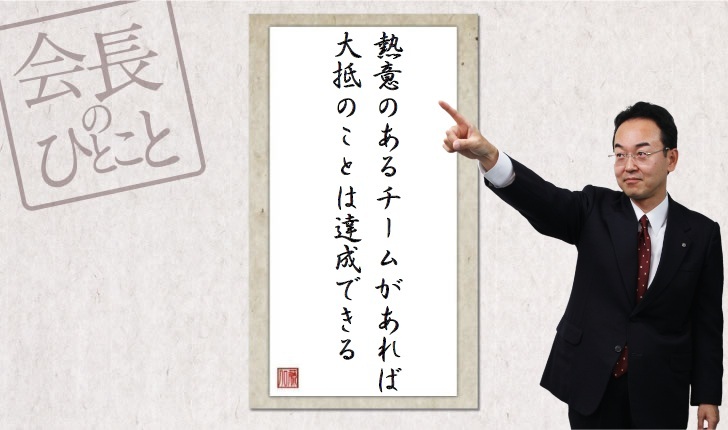 会長
の
ひとこと
熱意のあるチームがあれば
大抵のことは達成できる